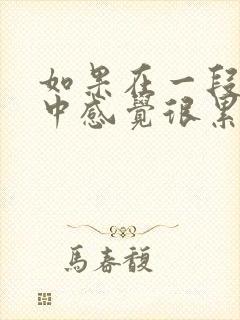 如果在一段
中感覺很累
馬春馥